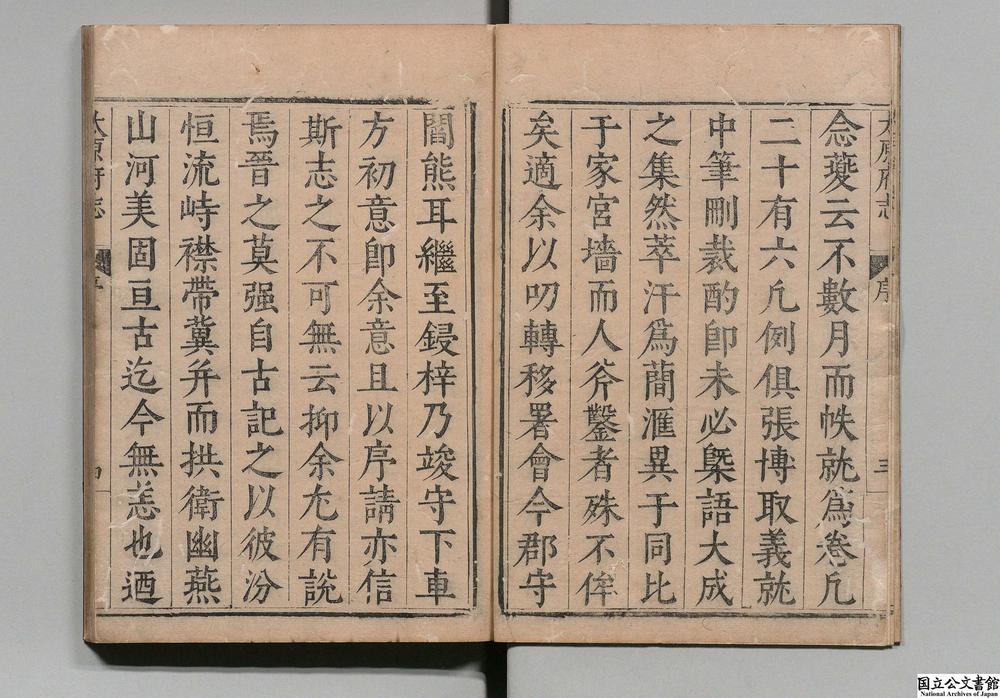 太原府志
序
三
念夔云不數月而帙就爲卷凡
二十有六凡例俱張博取義就
中筆刪裁酌卽未必槩語大成
之集然萃汗爲蕳滙異于同比
于家宮墻而人斧鑿者殊不侔
矣適余以叨轉移署會今郡守
閻熊耳繼至鋟梓乃竣守下車
方初意卽余意且以序請亦信
斯志之不可無云抑余尢有説
焉晉之莫强自古記之以彼汾
恒流峙襟帶冀并而拱衛幽燕
山河美固亘古迄今無恙也迺
太原府志
序
四
国立公文書館
National Archives of Japan